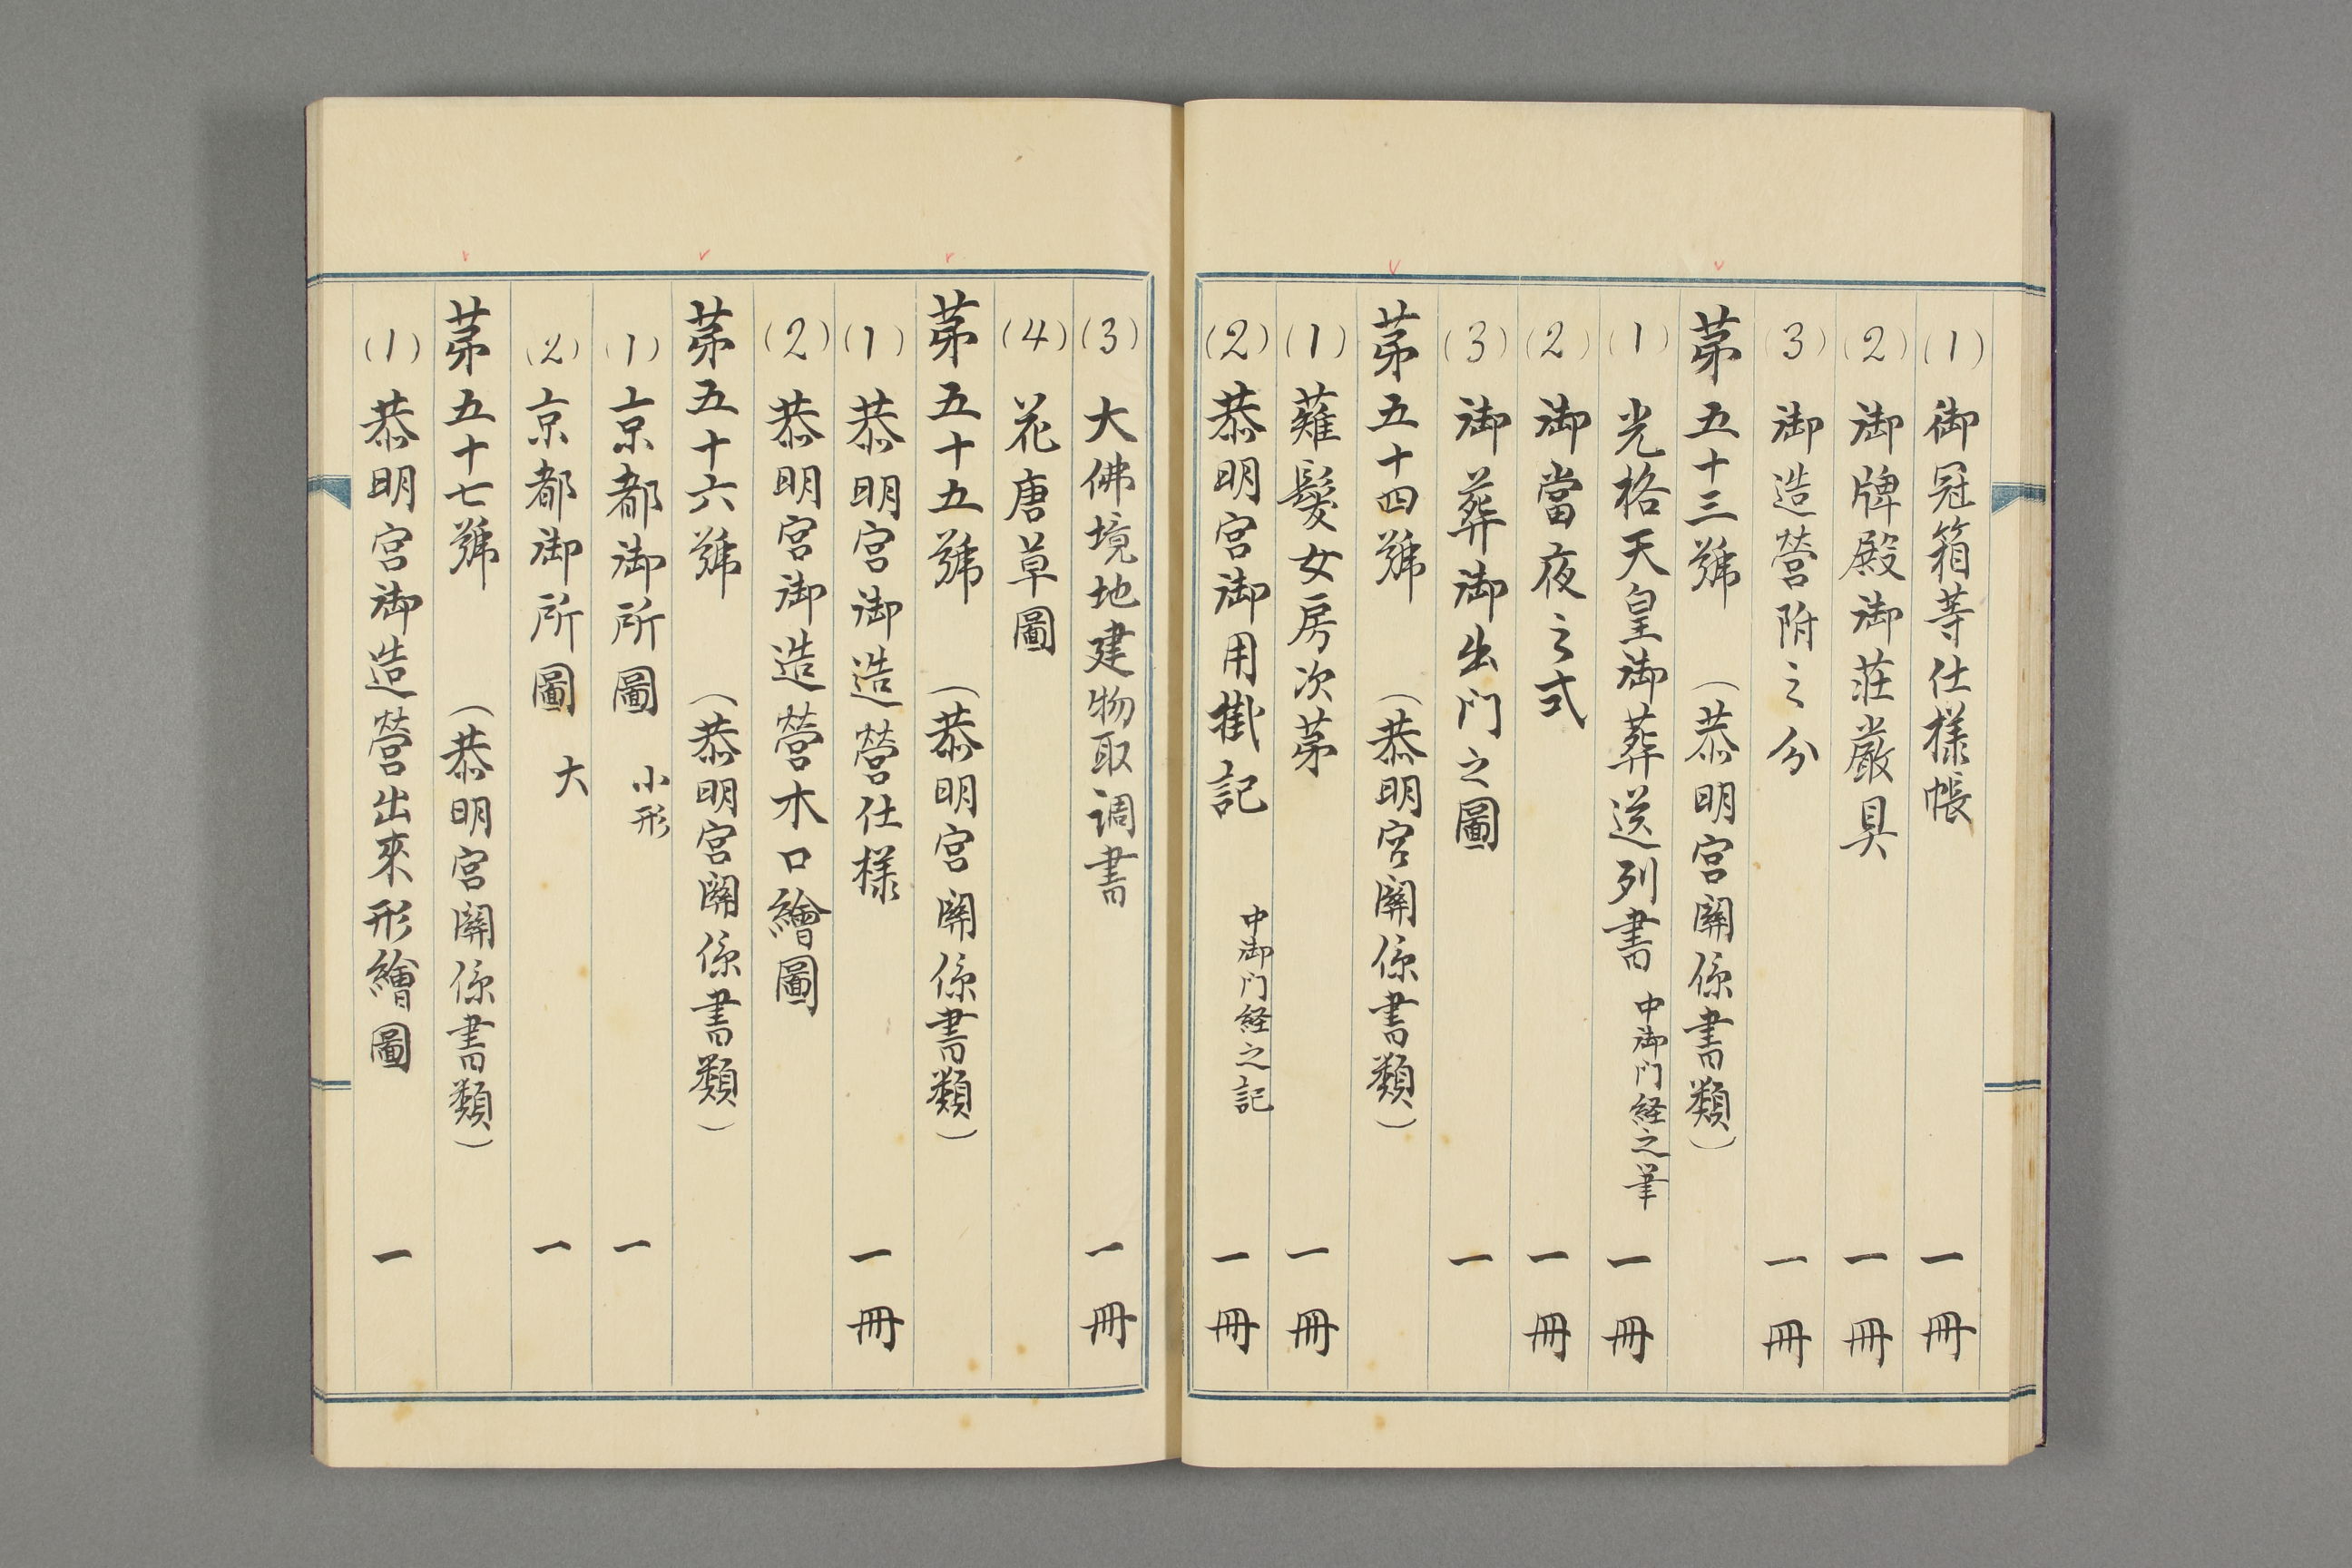 (1) 御冠箱等仕様帳 一冊
(2) 御牌殿御荘嚴具 一冊
(3) 御造營附之分 一冊
第五十三號 (恭明宮關係書類)
(1) 光格天皇御葬送列書 中御門経之筆 一冊
(2) 御當夜之式 一冊
(3) 御葬御出門之圖 一
第五十四號 (恭明宮關係書類)
(1) 薙髮女房次第 一冊
(2) 恭明宮御用掛記 中御門経之記 一冊
(3) 大佛境地建物取調書 一冊
(4) 花唐草圖
第五十五號 (恭明宮關係書類)
(1) 恭明宮御造營仕様 一冊
(2) 恭明宮御造營木口繪圖
第五十六號 (恭明宮關係書類)
(1) 京都御所圖 小形 一
(2) 京都御所圖 大 一
第五十七號 (恭明宮關係書類)
(1) 恭明宮御造營出來形繪圖 一